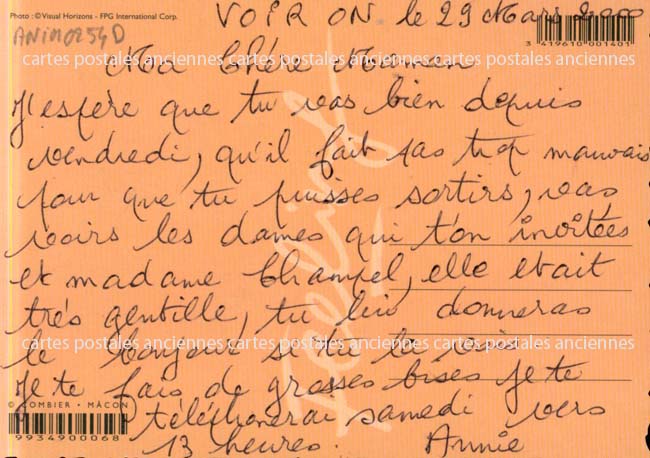 Photo : ©Visual Horizons - FPG International Corp.
VOIRON le 29 Mars 2000
ANIM0254D
3 419610 001401
cartes postales anciennes cartes postales anciennes cartes postales anciennes
Ma Chère Maman
J'espère que tu vas bien depuis
vendredi, qu'il fait pas trop mauvais
pour que tu puisses sortirs, vas
voirs les dames qui t'on invitées
et madame Champel, elle etait
très gentille, tu lui donneras
cartes postales anciennes cartes postales anciennes cartes postales anciennes
le bonjour si tu la vois.
Je te fais de grosses bises je te
© COMBIER - MÂCON
téléphonerai samedi vers
9934900068
13 heures. Annie
Feeling